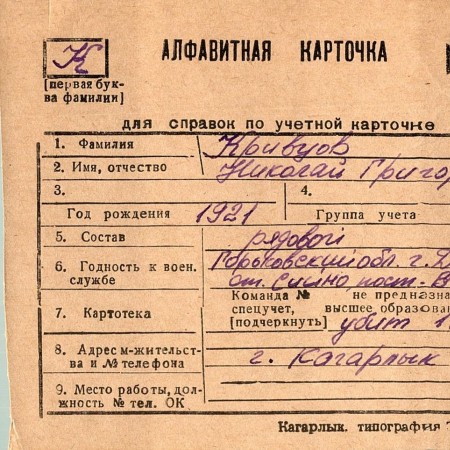 К
АЛФАВИТНАЯ КАРТОЧКА
[первая бук-
ва фамилии]
для справок по учетной карточке
1. Фамилия Кривцов
2. Имя, отчество Николай Григор
3. 4.
Год рождения 1921 Группа учета
5. Состав рядовой
6. Годность к воен.
службе
Горьковский обл. г.
ст.
Команда № не предназна
7. Картотека
спецучет, высшее образова
[подчеркнуть] убит
8. Адрес м-жительст-
ва и № телефона
г. Кагарлык
9. Место работы, дол-
жность № тел. ОК
Кагарлык. типография